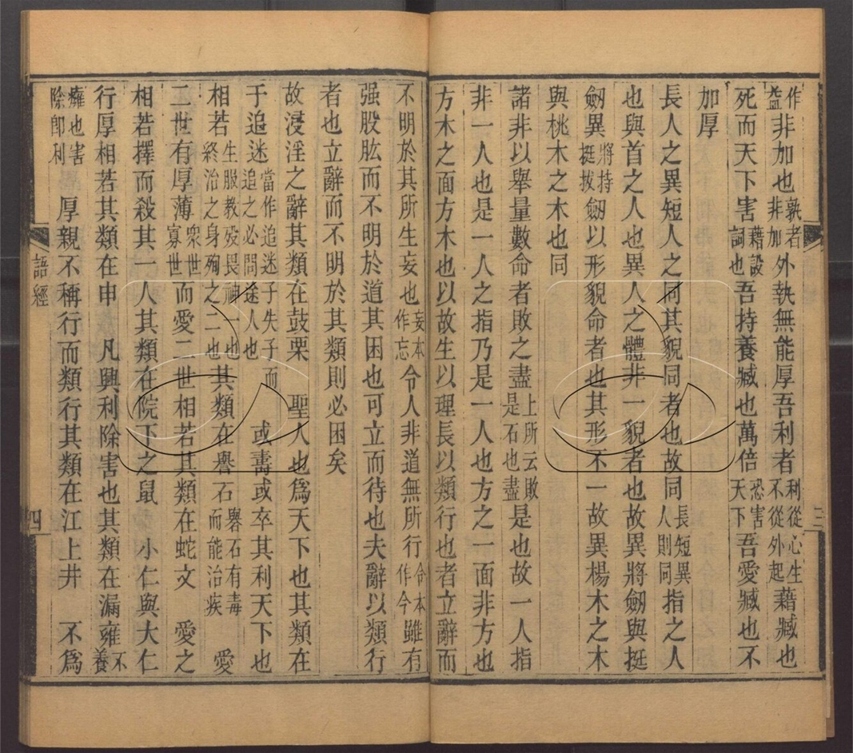 作益非加也孰者非加外執無能厚吾利者利從心生不從外起藉臧也
死而天下害藉設詞也吾持養臧也萬倍恐害天下吾愛臧也不
加厚
長人之異短人之同其貌同者也故同長短異人則同指之人
也與首之人也異人之體非一貌者也故異將劒與挺
劒異將持挺拔劒以形貌命者也其形不一故異楊木之木
與桃木之木也同
諸非以舉量數命者敗之盡上所云敗是石也盡是也故一人指
非一人也是一人之指乃是一人也方之一面非方也
方木之面方木也以故生以理長以類行也者立辭而
三
不明於其所生妄也妄本作忘今人非道無所行今本作今雖有
强股肱而不明於道其困也可立而待也夫辭以類行
者也立辭而不明於其類則必困矣
故浸淫之辭其類在鼓栗　聖人也爲天下也其類在
于追迷當作追迷子失子而追之必問途人也　或壽或卒其利天下也
相若生服教殁畏神一也終治之身殉之二也其類在譽石礜石有毒而能治疾　愛
二世有厚薄衆世寡世而愛二世相若其類在蛇文　愛之
相若擇而殺其一人其類在院下之鼠　小仁與大仁
行厚相若其類在申　凡興利除害也其類在漏雍不養
癰也害除即利　厚親不稱行而類行其類在江上井　不爲
語經
四